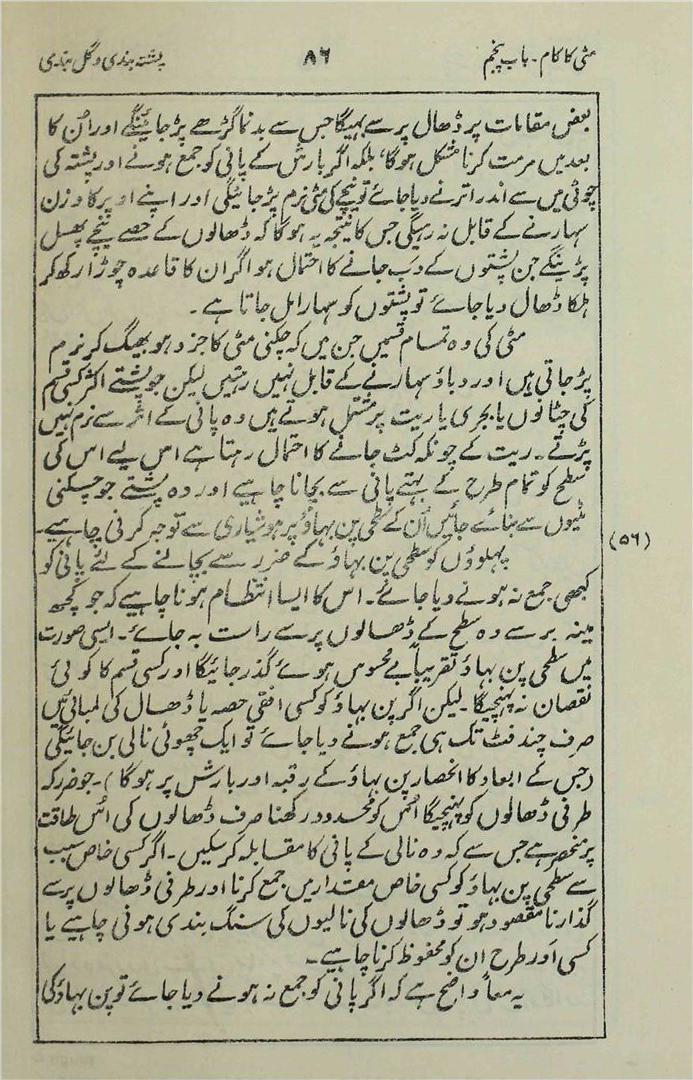 مٹی کا کام - باب پنجم ۸۶ پشتہ بندی و گل بندی
بعض مقامات پر ڈھال پر سے بہیگا جس سے بدنما گڑھے پڑ جائینگے اور اُن کا
بعد میں مرمت کرنا مشکل ہوگا، بلکہ اگر بارش کے پانی کو جمع ہونے اور پشتہ کی
چوٹی میں سے اندر اترنے دیا جائے تو نیچے کی مٹی نرم پڑ جائیگی اور اپنے اوپر کا وزن
سہارنے کے قابل نہ رہیگی جس کا نتیجہ یہ ہوگا کہ ڈھالوں کے حصے نیچے پھسل
پڑینگے جن پشتوں کے دَب جانے کا احتمال ہو اگر ان کا قاعدہ چوڑا رکھ کر
ہلکا ڈھال دیا جائے تو پشتوں کو سہارا مل جاتا ہے۔
مٹی کی وہ تمام قسمیں جن میں کہ چکنی مٹی کا جزو ہو بھیگ کر نرم
پڑ جاتی ہیں اور دباؤ سہارنے کے قابل نہیں رہتیں لیکن جو پشتے اکثر کسی قسم
کی چٹانوں یا بجری یا ریت پر مشتمل ہوتے ہیں وہ پانی کے اثر سے نرم نہیں
پڑتے۔ ریت کے چونکہ کٹ جانے کا احتمال رہتا ہے اس لیے اس کی
سطح کو تمام طرح کے بہتے پانی سے بچانا چاہیے اور وہ پشتے جو چکنی
مٹیوں سے بنائے جائیں اُن کے سطحی پن بہاؤ پر ہوشیاری سے توجہ کرنی چاہیے۔
(۵۶) پہلوؤں کو سطحی پن بہاؤ کے ضرر سے بچانے کے لئے پانی کو
کبھی جمع نہ ہونے دیا جائے۔ اس کا ایسا انتظام ہونا چاہیے کہ جو کچھ
مینہ برسے وہ سطح کے ڈھالوں پر سے راست بہ جائے۔ ایسی صورت
میں سطحی پن بہاؤ تقریباً بے محسوس ہوئے گذر جائیگا اور کسی قسم کا کوئی
نقصان نہ پہنچیگا۔ لیکن اگر پن بہاؤ کو کسی افقی حصہ یا ڈھال کی لمبائی میں
صرف چند فٹ تک ہی جمع ہونے دیا جائے تو ایک چھوٹی نالی بن جائیگی
(جس کے ابعاد کا انحصار پن بہاؤ کے رقبہ اور بارش پر ہوگا)۔ جو ضرر کہ
طرفی ڈھالوں کو پہنچیگا اُس کو محدود رکھنا صرف ڈھالوں کی اُس طاقت
پر منحصر ہے جس سے کہ وہ نالی کے پانی کا مقابلہ کر سکیں۔ اگر کسی خاص سبب
سے سطحی پن بہاؤ کو کسی خاص مقدار میں جمع کرنا اور طرفی ڈھالوں پر سے
گذارنا مقصود ہو تو ڈھالوں کی نالیوں کی سنگ بندی ہونی چاہیے یا
کسی اَور طرح ان کو محفوظ کرنا چاہیے۔
یہ معاً واضح ہے کہ اگر پانی کو جمع نہ ہونے دیا جائے تو پن بہاؤ کی